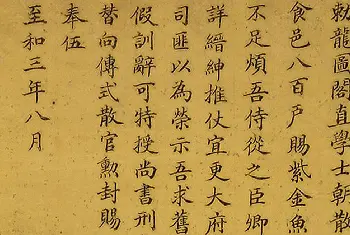 勅龍圖閣直學士朝散
食邑八百戶賜紫金魚
不足煩吾侍從之臣卿
詳縉紳推仗宜更大府
司匪以為榮示吾求舊
假訓辭可特授尚書刑
替向傳式散官勲封賜
奉伍
至和三年八月